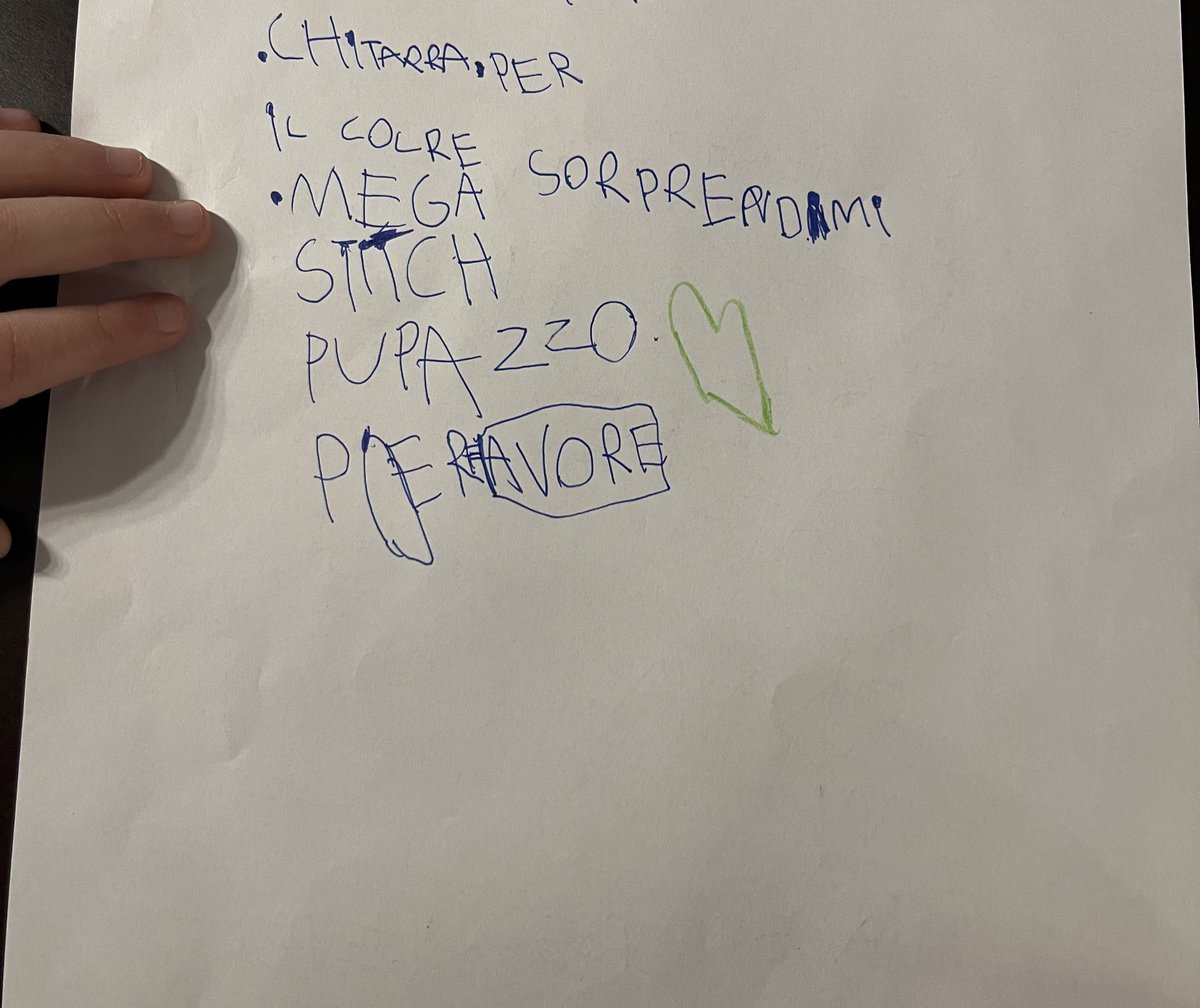 .CHITARRA.PER
IL COLRE SORPRENDIMI
•MEGA
STITCH
PUPAZZO.
PER FAVORE